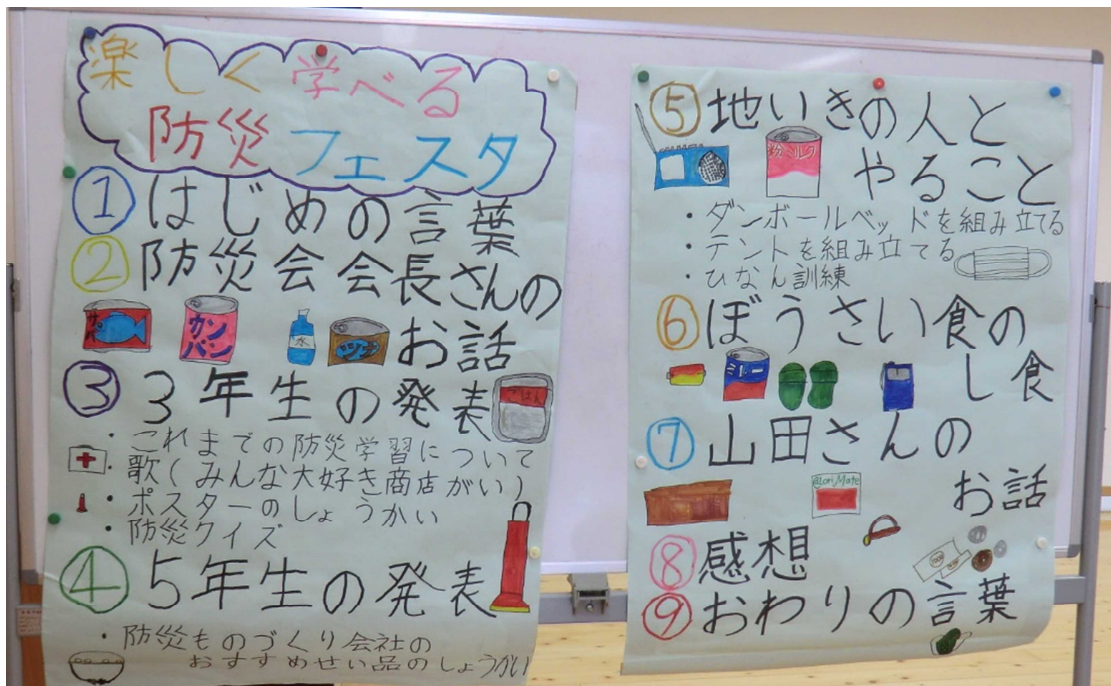 楽しく学べる
防災フェスタ
①はじめの言葉
②防災会会長さんの
カン
パン
水
ツナ
お話
③3年生の発表
ごはん
・これまでの防災学習について
・歌(みんな大好き商店がい)
・ポスターのしょうかい
・防災クイズ
④5年生の発表
・防災ものづくり会社の
おすすめせい品のしょうかい
⑤地いきの人と
粉ミルク
やること
・ダンボールベッドを組み立てる
・テントを組み立てる
・ひなん訓練
⑥ぼうさい食の
し食
⑦山田さんの
お話
⑧感想
⑨おわりの言葉